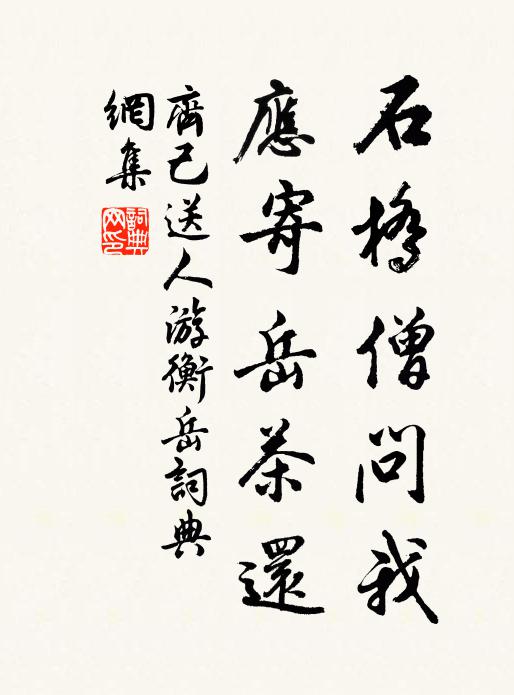 石橋僧問我
應寄岳茶還
齊己送人游衡岳詞典
網集
詞典
网印